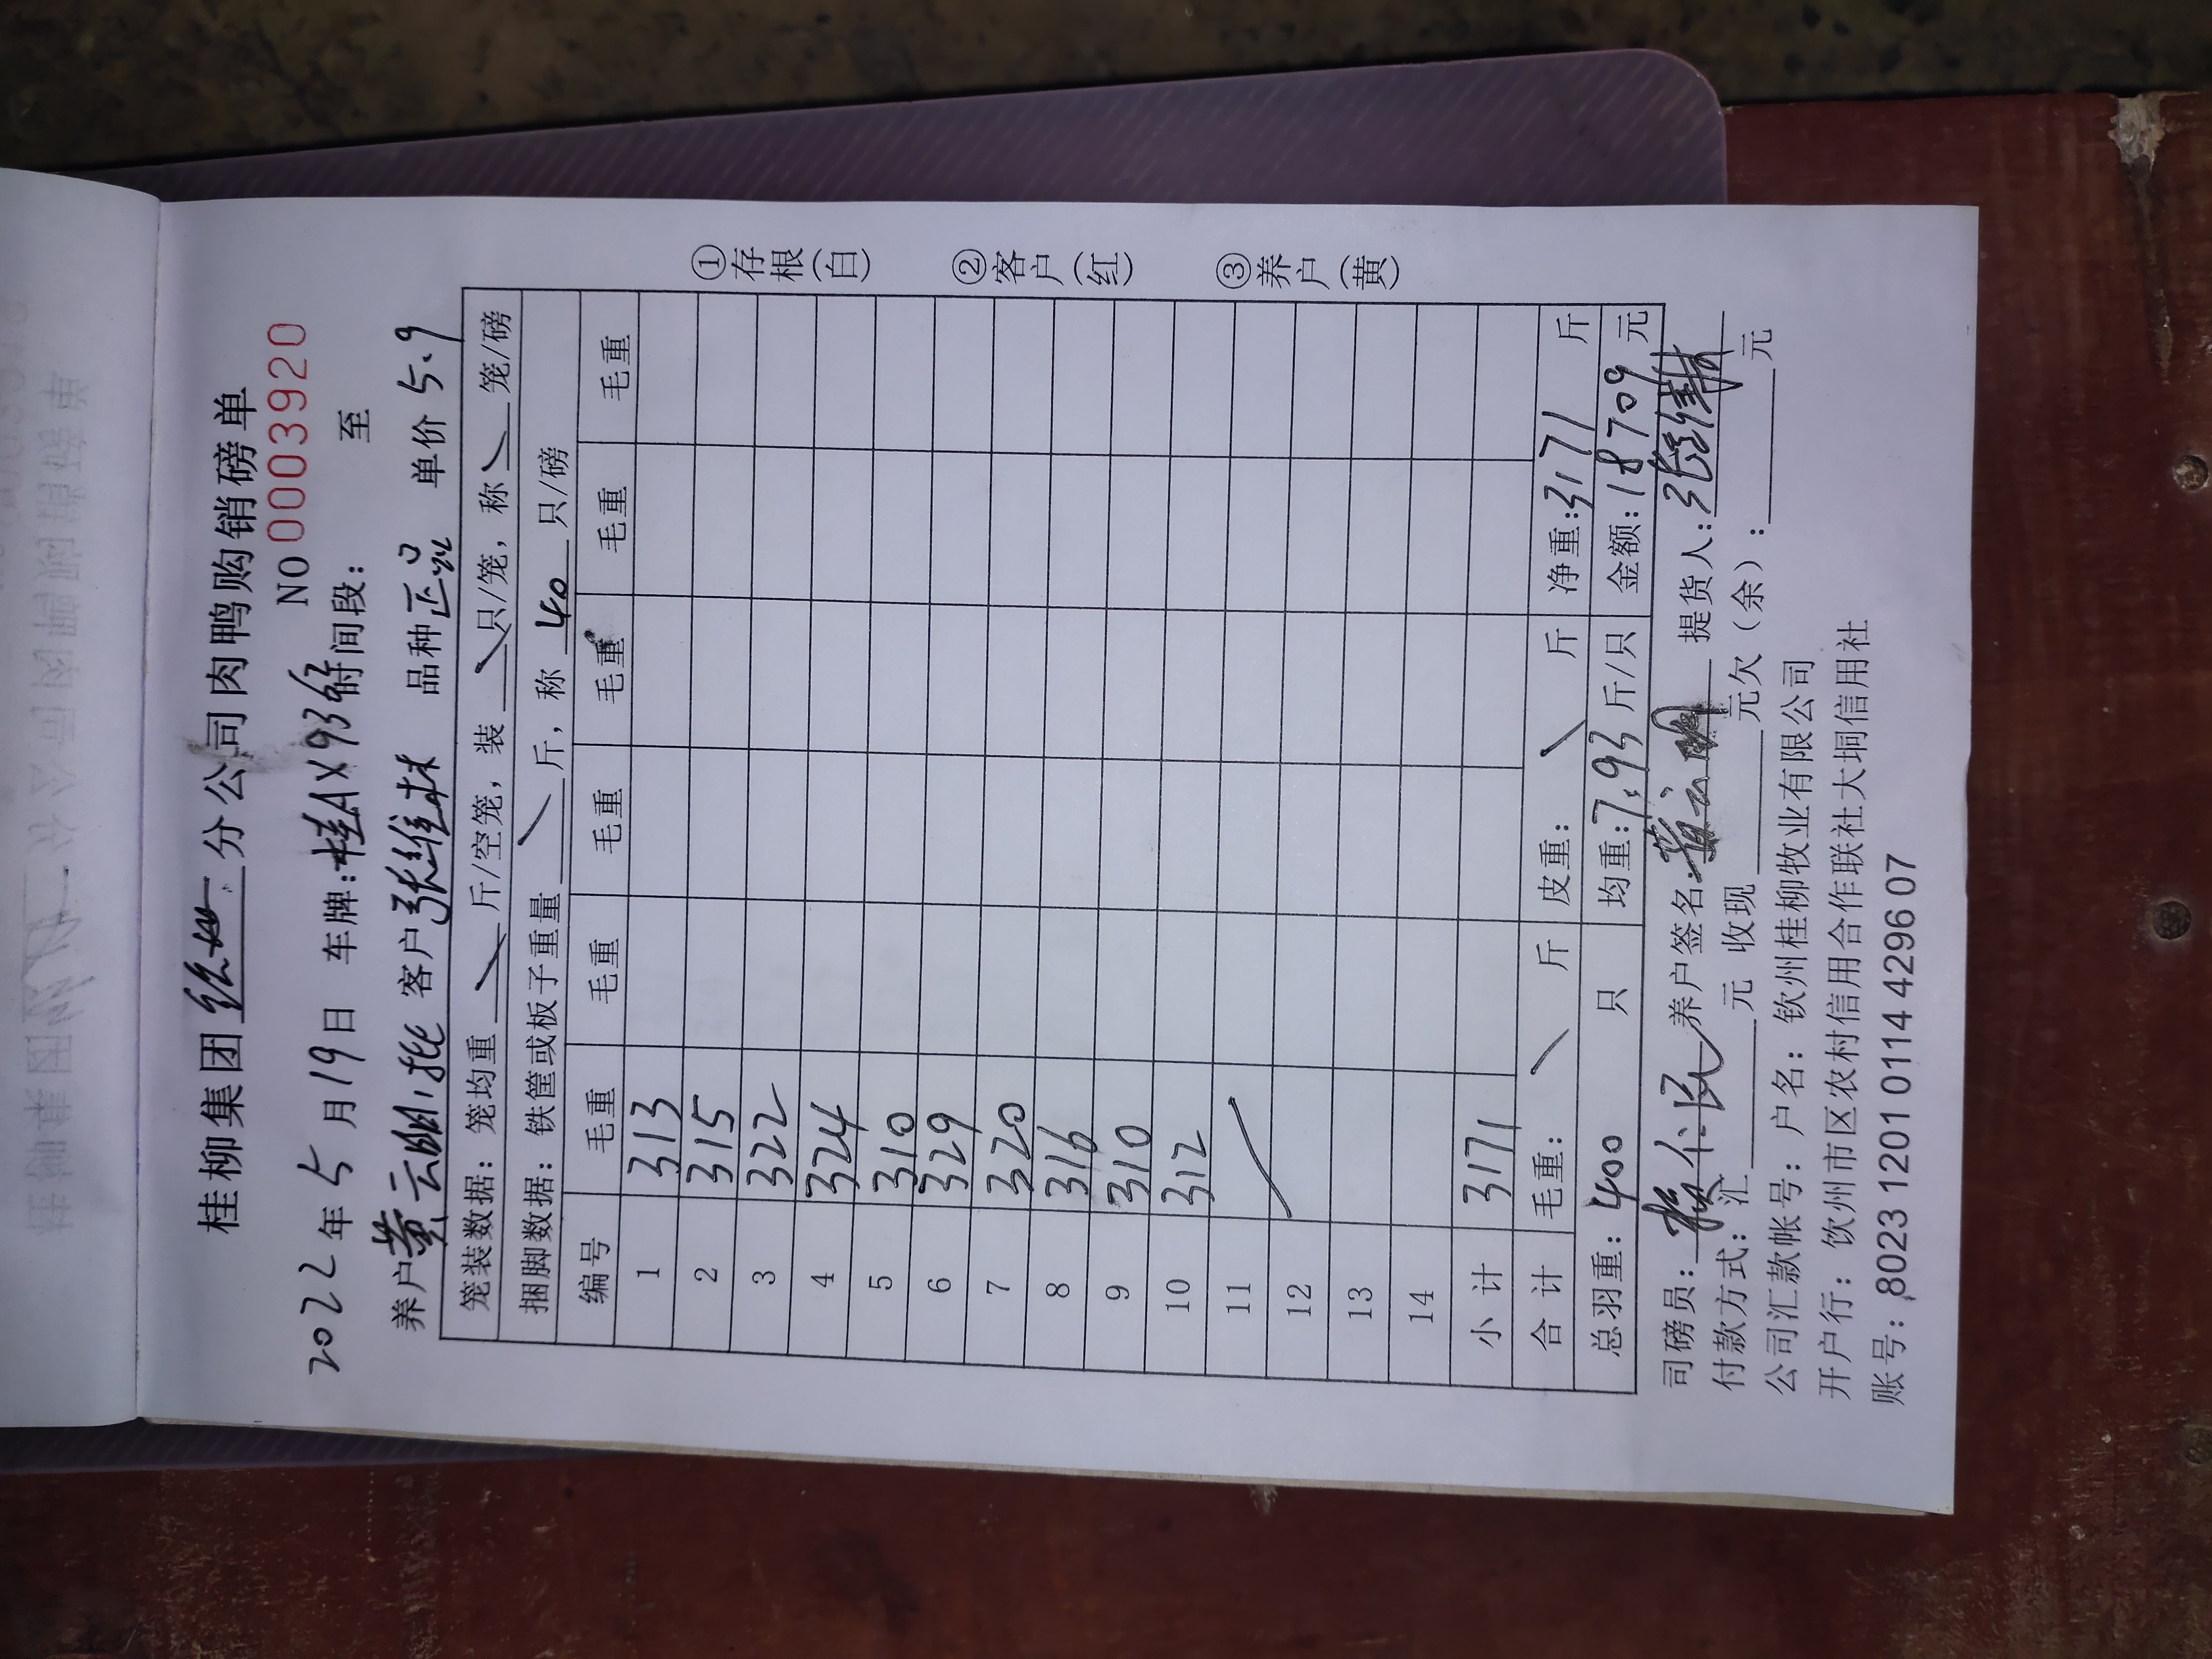 桂柳集团 分公司肉鸭购销磅单
NO 0003920
2022年5月19日 车牌:桂AX936 时间段: 至
养户黄云明 批 客户张继林 品种正品 单价5.9
笼装数据: 笼均重 斤/空笼, 装 只/笼, 称 笼/磅
捆脚数据: 铁筐或板子重量 斤, 称 40 只/磅
编号 毛重 毛重 毛重 毛重 毛重 毛重
1 313
2 315
3 322
4 324
5 310
6 329
7 320
8 316
9 310
10 312
11
12
13
14
小计 3171
合计 毛重: 斤 皮重: 斤 净重:3171 斤
总羽重: 400 只 均重:7.93 斤/只 金额:18709 元
司磅员: 养户签名:黄云明 提货人:张继林
付款方式: 汇 元 收现 元欠(余): 元
公司汇款帐号: 户名: 钦州桂柳牧业有限公司
开户行: 钦州市区农村信用合作联社大垌信用社
账号: 8023 1201 0114 4296 07
①存根(白)
②客户(红)
③养户(黄)